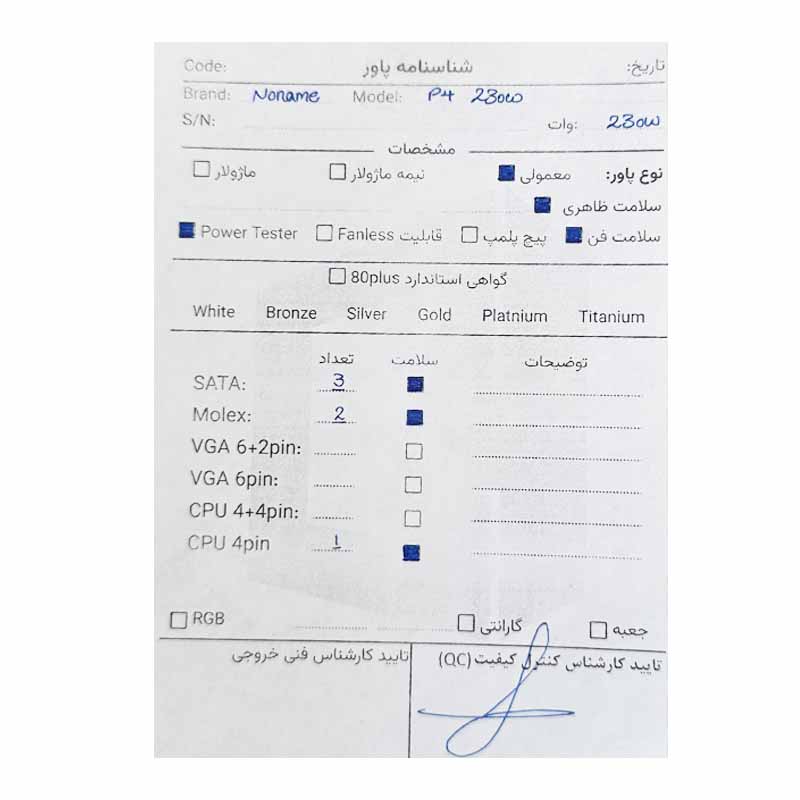 Code: شناسنامه پاور تاریخ:
Brand: Noname Model: P4 230W
S/N: وات: 230W
مشخصات
نوع پاور: معمولی نیمه ماژولار ماژولار
سلامت ظاهری
سلامت فن پیچ پلمپ قابلیت Fanless Power Tester
گواهی استاندارد 80plus
White Bronze Silver Gold Platnium Titanium
تعداد سلامت توضیحات
SATA: 3
Molex: 2
VGA 6+2pin:
VGA 6pin:
CPU 4+4pin:
CPU 4pin 1
RGB گارانتی جعبه
تایید کارشناس کنترل کیفیت (QC) تایید کارشناس فنی خروجی